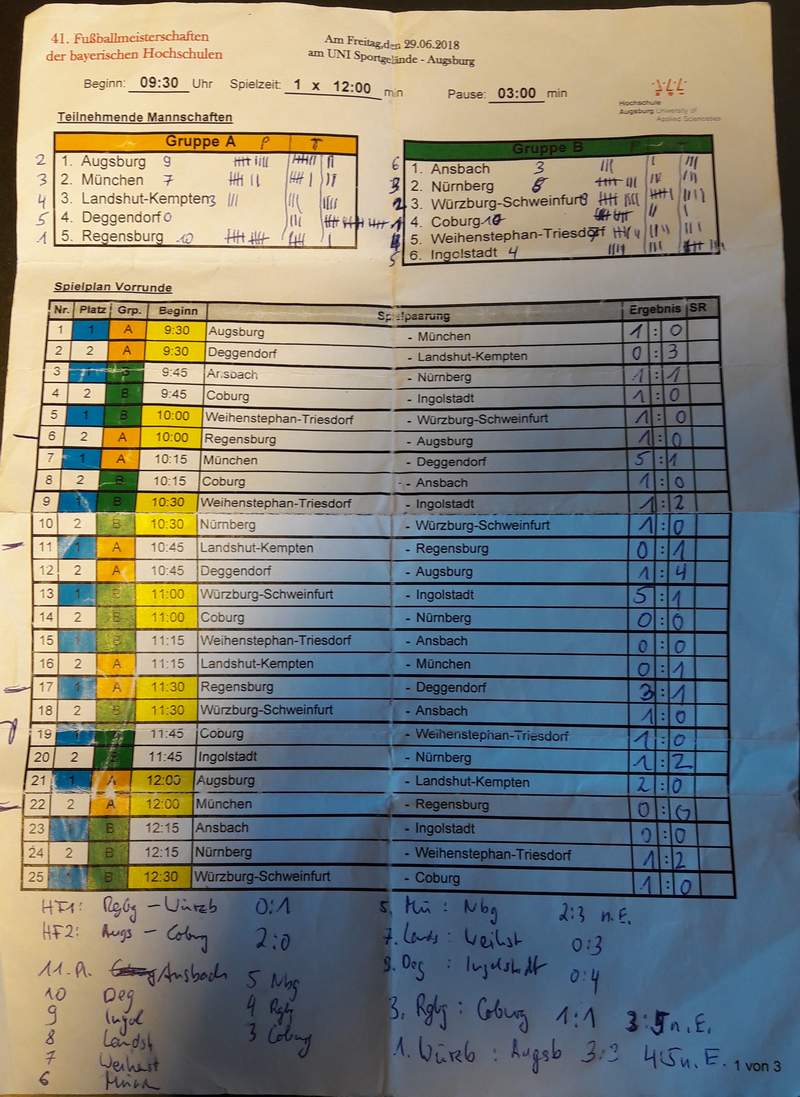 41. Fußballmeisterschaften
der bayerischen Hochschulen
Am Freitag,den 29.06.2018
am UNI Sportgelände - Augsburg
Beginn: 09:30 Uhr Spielzeit: 1 x 12:00 min Pause: 03:00 min
Hochschule
Augsburg University of
Applied Sciences
Teilnehmende Mannschaften
Gruppe A P T
2 1. Augsburg 9
3 2. München 7
4 3. Landshut-Kempten 3
5 4. Deggendorf 0
1 5. Regensburg 10
Gruppe B P T
6 1. Ansbach 3
3 2. Nürnberg
2 3. Würzburg-Schweinfurt
1 4. Coburg 10
5. Weihenstephan-Triesdorf
5 6. Ingolstadt 4
Spielplan Vorrunde
Nr. Platz Grp. Beginn Spielpaarung Ergebnis SR
1 1 A 9:30 Augsburg - München 1 : 0
2 2 A 9:30 Deggendorf - Landshut-Kempten 0 : 3
3 1 B 9:45 Ansbach - Nürnberg 1 : 1
4 2 B 9:45 Coburg - Ingolstadt 1 : 0
5 1 B 10:00 Weihenstephan-Triesdorf - Würzburg-Schweinfurt 1 : 0
6 2 A 10:00 Regensburg - Augsburg 1 : 0
7 1 A 10:15 München - Deggendorf 5 : 1
8 2 B 10:15 Coburg - Ansbach 1 : 0
9 1 B 10:30 Weihenstephan-Triesdorf - Ingolstadt 1 : 2
10 2 B 10:30 Nürnberg - Würzburg-Schweinfurt 1 : 0
11 1 A 10:45 Landshut-Kempten - Regensburg 0 : 1
12 2 A 10:45 Deggendorf - Augsburg 1 : 4
13 1 B 11:00 Würzburg-Schweinfurt - Ingolstadt 5 : 1
14 2 B 11:00 Coburg - Nürnberg 0 : 0
15 1 B 11:15 Weihenstephan-Triesdorf - Ansbach 0 : 0
16 2 A 11:15 Landshut-Kempten - München 0 : 1
17 1 A 11:30 Regensburg - Deggendorf 3 : 1
18 2 B 11:30 Würzburg-Schweinfurt - Ansbach 1 : 0
19 1 B 11:45 Coburg - Weihenstephan-Triesdorf 1 : 0
20 2 B 11:45 Ingolstadt - Nürnberg 1 : 2
21 1 A 12:00 Augsburg - Landshut-Kempten 2 : 0
22 2 A 12:00 München - Regensburg 0 : 0
23 1 B 12:15 Ansbach - Ingolstadt 0 : 0
24 2 B 12:15 Nürnberg - Weihenstephan-Triesdorf 1 : 2
25 1 B 12:30 Würzburg-Schweinfurt - Coburg 1 : 0
HF1: Rgbg - Würzb 0:1
HF2: Augs - Coburg 2:0
5. Mü : Nbg 2:3 n.E.
7. Lands : Weihst 0:3
9. Deg : Ingolstadt 0:4
3. Rgbg : Coburg 1:1 3:5 n.E.
1. Würzb : Augsb 3:3 4:5 n.E.
11. Pl. Ansbach 5 Nbg
10 Deg 4 Rgbg
9 Ingol 3 Coburg
8 Landsh
7 Weihest
6 Münch
1 von 3